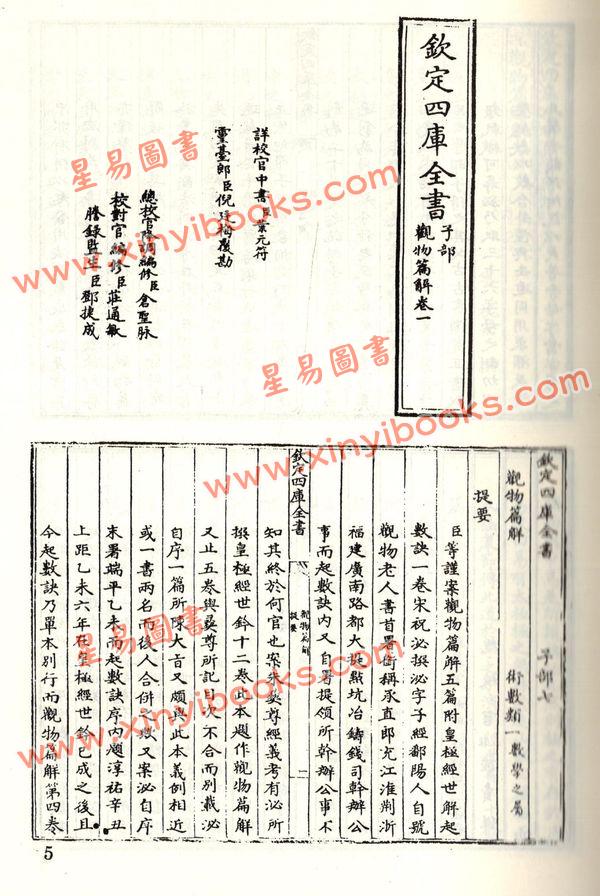 欽定四庫全書
子部
觀物篇解卷一
詳校官中書臣葉元符
靈臺郎臣倪廷梅覆勘
總校官降調編修臣倉聖脉
校對官編修臣莊通敏
謄錄監生臣鄧捷成
星易圖書
www.xinyibooks.com
星易圖書
www.xinyibooks.com
星易圖書
www.xinyibooks.com
星易圖書
www.xinyibooks.com
欽定四庫全書 子部七
觀物篇解 術數類一數學之屬
提要
臣等謹案觀物篇解五篇附皇極經世解起
數訣一卷宋祝泌撰泌字子經鄱陽人自號
觀物老人書首署銜稱承直郎充江淮荆浙
福建廣南路都大提點坑冶鑄錢司幹辦公
事而起數訣內又自署提領所幹辦公事不
欽定四庫全書
觀物篇解
提要
一
知其終於何官也案朱彝尊經義考有泌所
撰皇極經世鈐十二卷此本題作觀物篇解
又止五卷與彝尊所記目次不合而別載泌
自序一篇所陳大旨又頗與此本義例相近
或一書兩名而後人合併之歟又案泌自序
末署端平乙未而起數訣序內題淳祐辛丑
上距乙未六年在皇極經世鈐已成之後且
今起數訣乃單本別行而觀物篇解第四卷
5